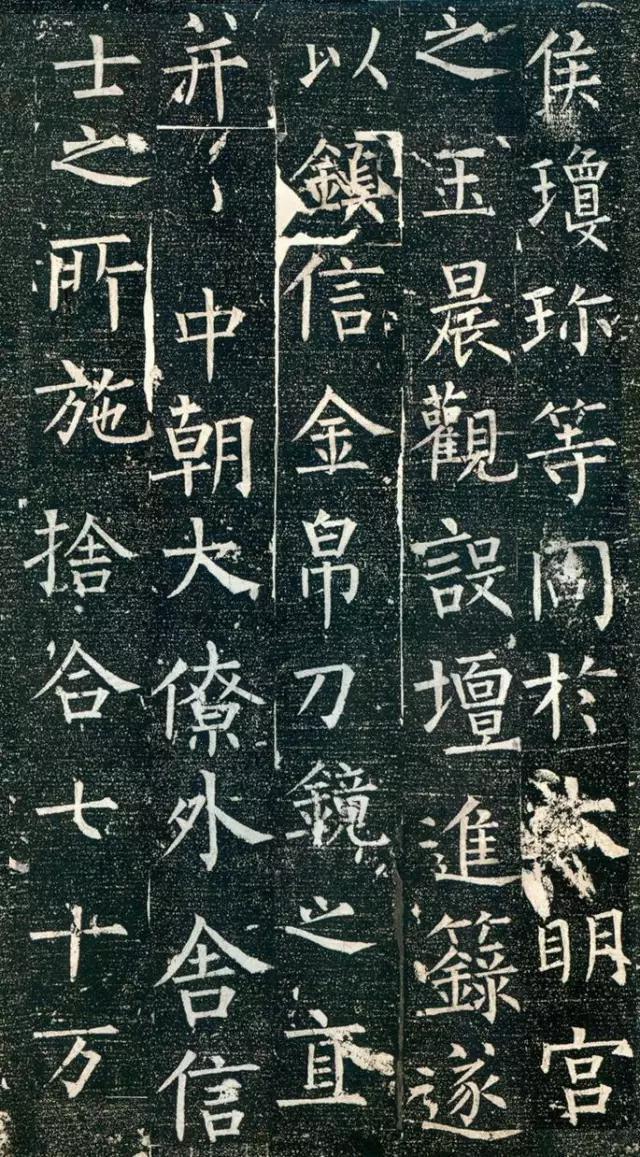 侯瓊珎等同於大明宮
之玉晨觀設壇進籙遂
以鎮信金帛刀鏡之直
并中朝大僚外舍信
士之所施捨合七十万